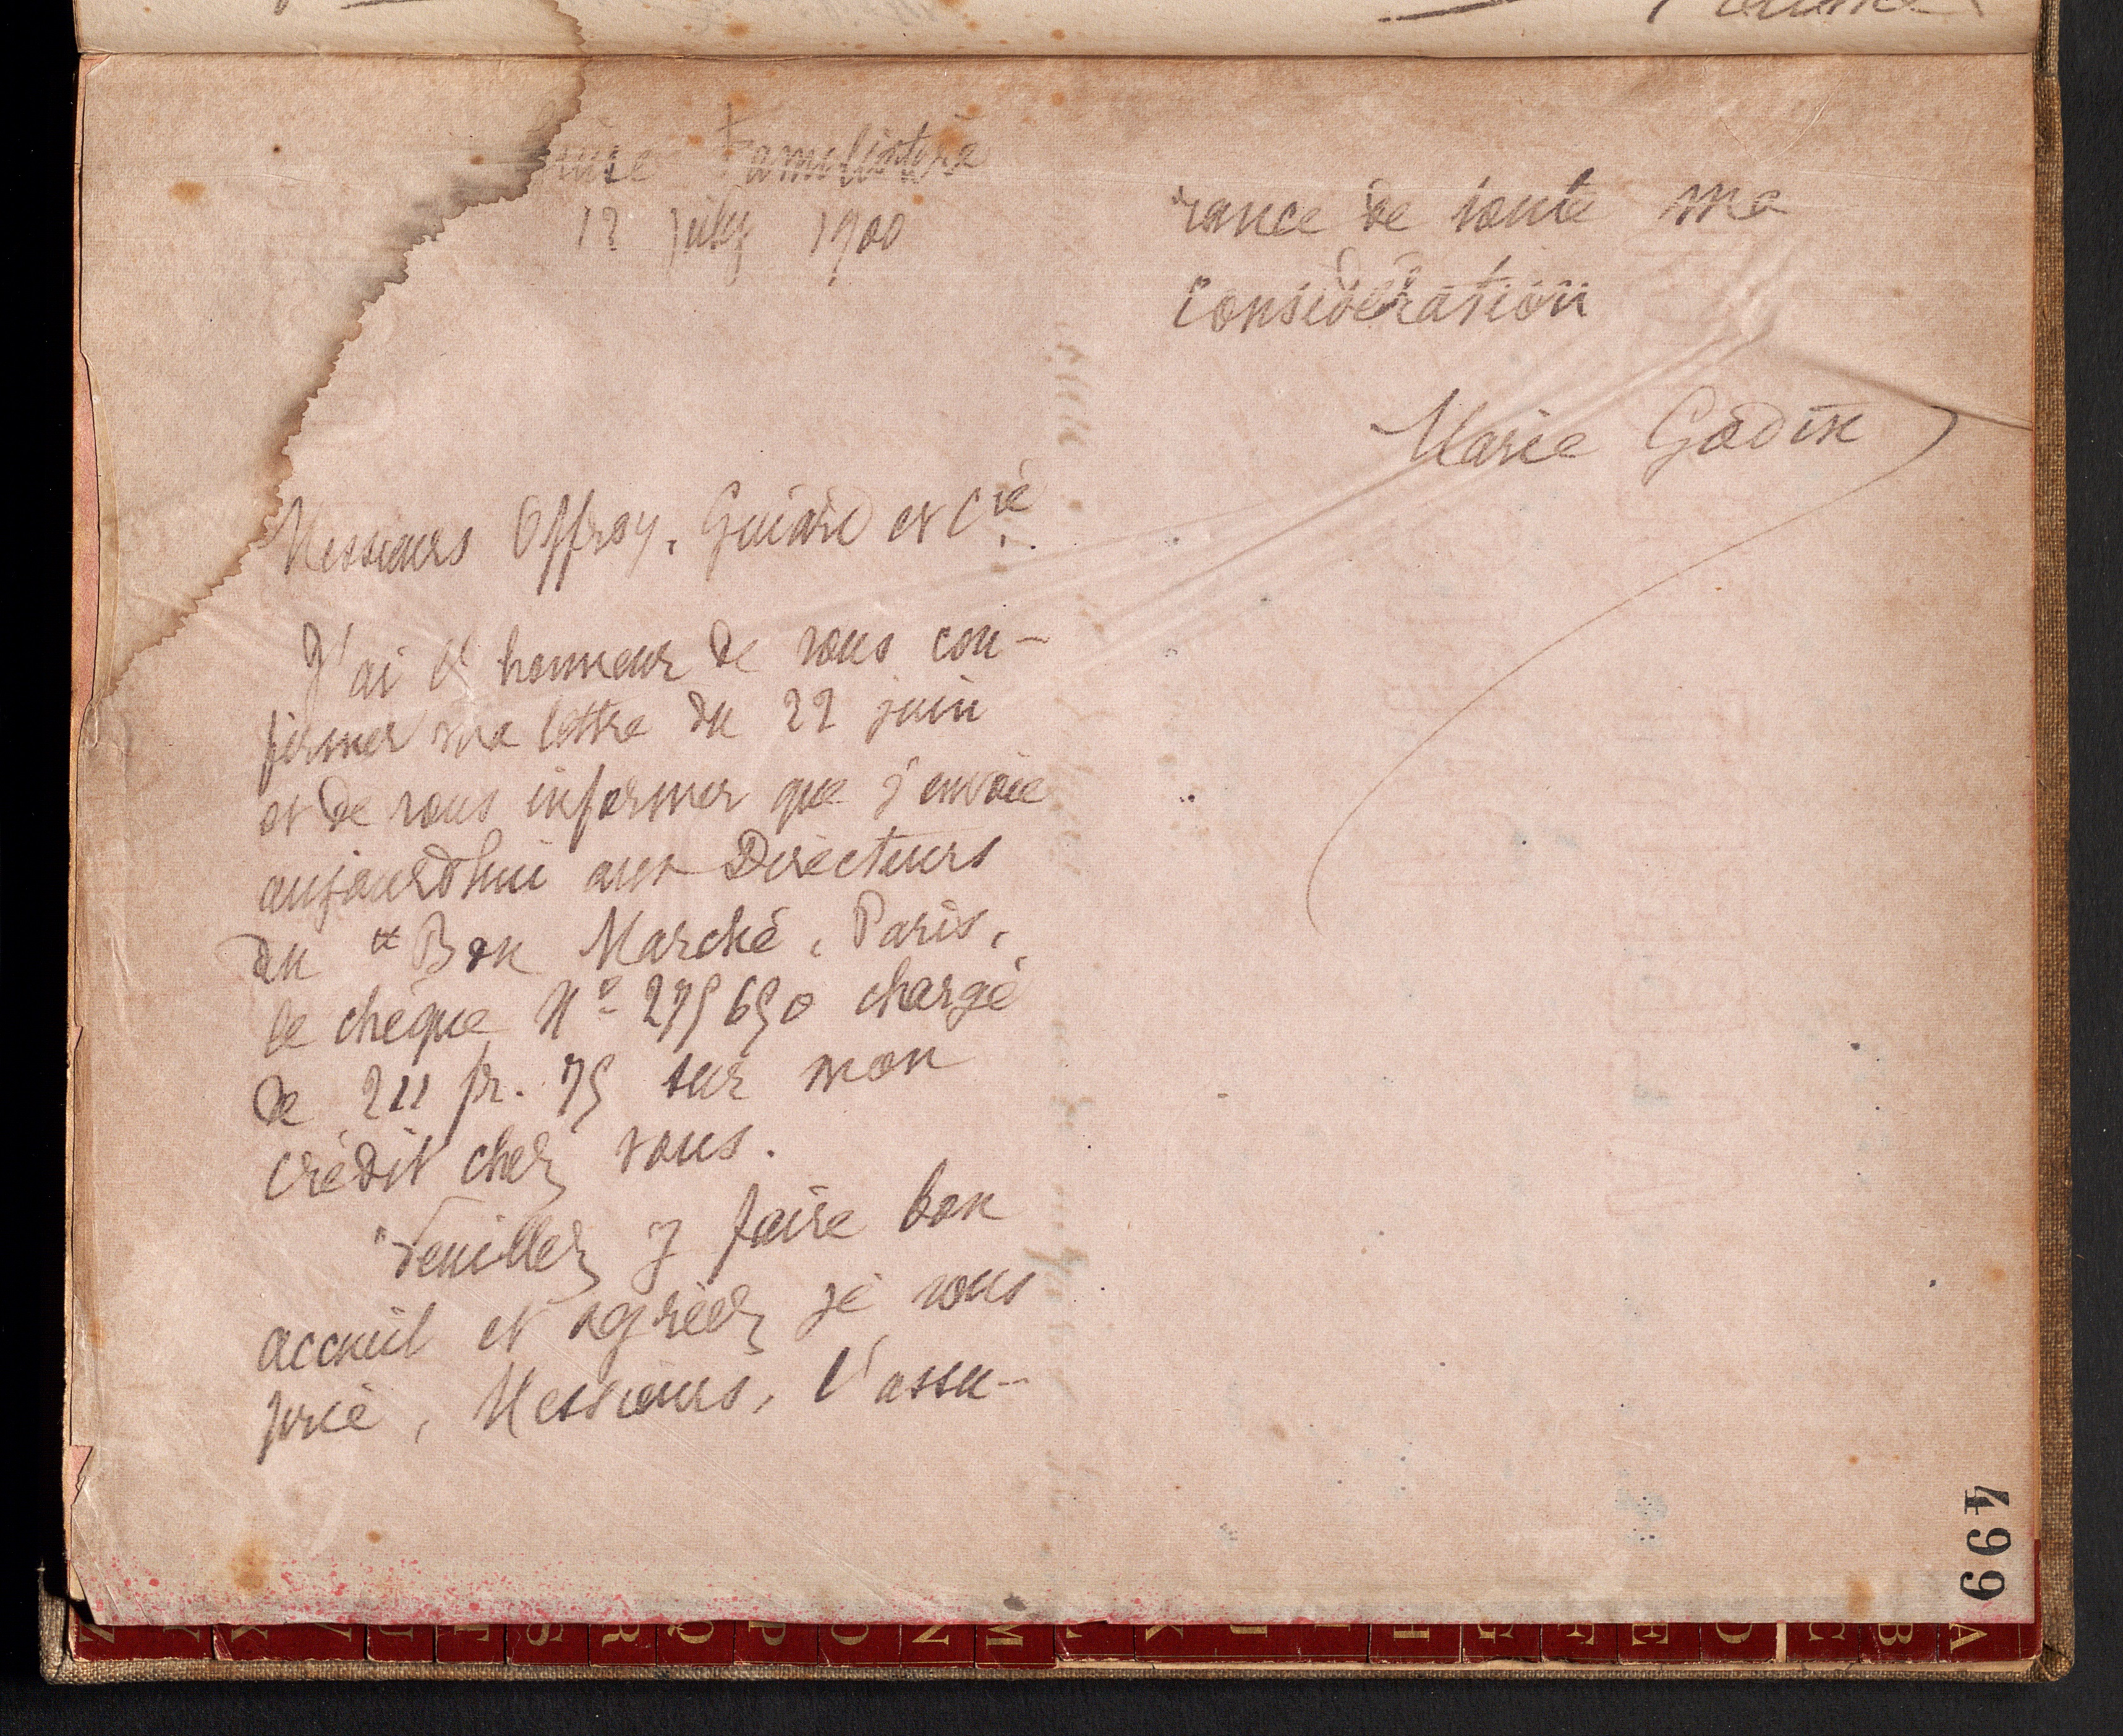 Guise Familistère
12 July 1900
Messieurs Offroy, Guiard et Cie.
J'ai l'honneur de vous con-
firmer ma lettre du 22 juin
et de vous informer que j'envoie
aujourd'hui aux Directeurs
du "Bon Marché, Paris,
le chèque No 275650 chargé
de 211 fr. 75 sur mon
crédit chez vous.
Veuillez y faire bon
accueil et agréez, je vous
prie, Messieurs, l'assu-
rance de toute ma
considération
Marie Godin
499
Z Y X V U T S R Q P O N M L K J I H G F E D C B A